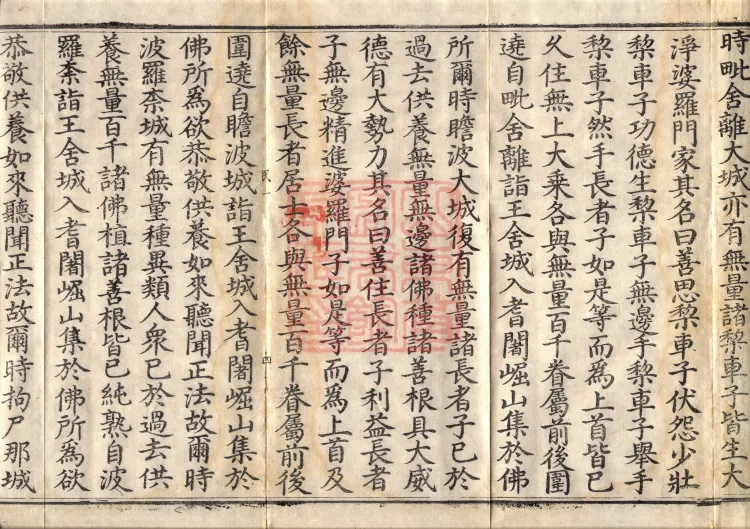 時毗舍離大城亦有無量諸黎車子皆生大
淨婆羅門家其名曰善思黎車子伏怨少壯
黎車子功德生黎車子無邊手黎車子舉手
黎車子然手長者子如是等而爲上首皆已
久住無上大乘各與無量百千眷屬前後圍
遶自毗舍離詣王舍城入耆闍崛山集於佛
所爾時瞻波大城復有無量諸長者子已於
過去供養無量無邊諸佛種諸善根具大威
德有大勢力其名曰善住長者子利益長者
子無邊精進婆羅門子如是等而爲上首及
餘無量長者居士各與無量百千眷屬前後
圍遶自瞻波城詣王舍城入耆闍崛山集於
佛所爲欲恭敬供養如來聽聞正法故爾時
波羅柰城有無量種異類人衆已於過去供
養無量百千諸佛植諸善根皆已純熟自波
羅柰詣王舍城入耆闍崛山集於佛所爲欲
恭敬供養如來聽聞正法故爾時拘尸那城